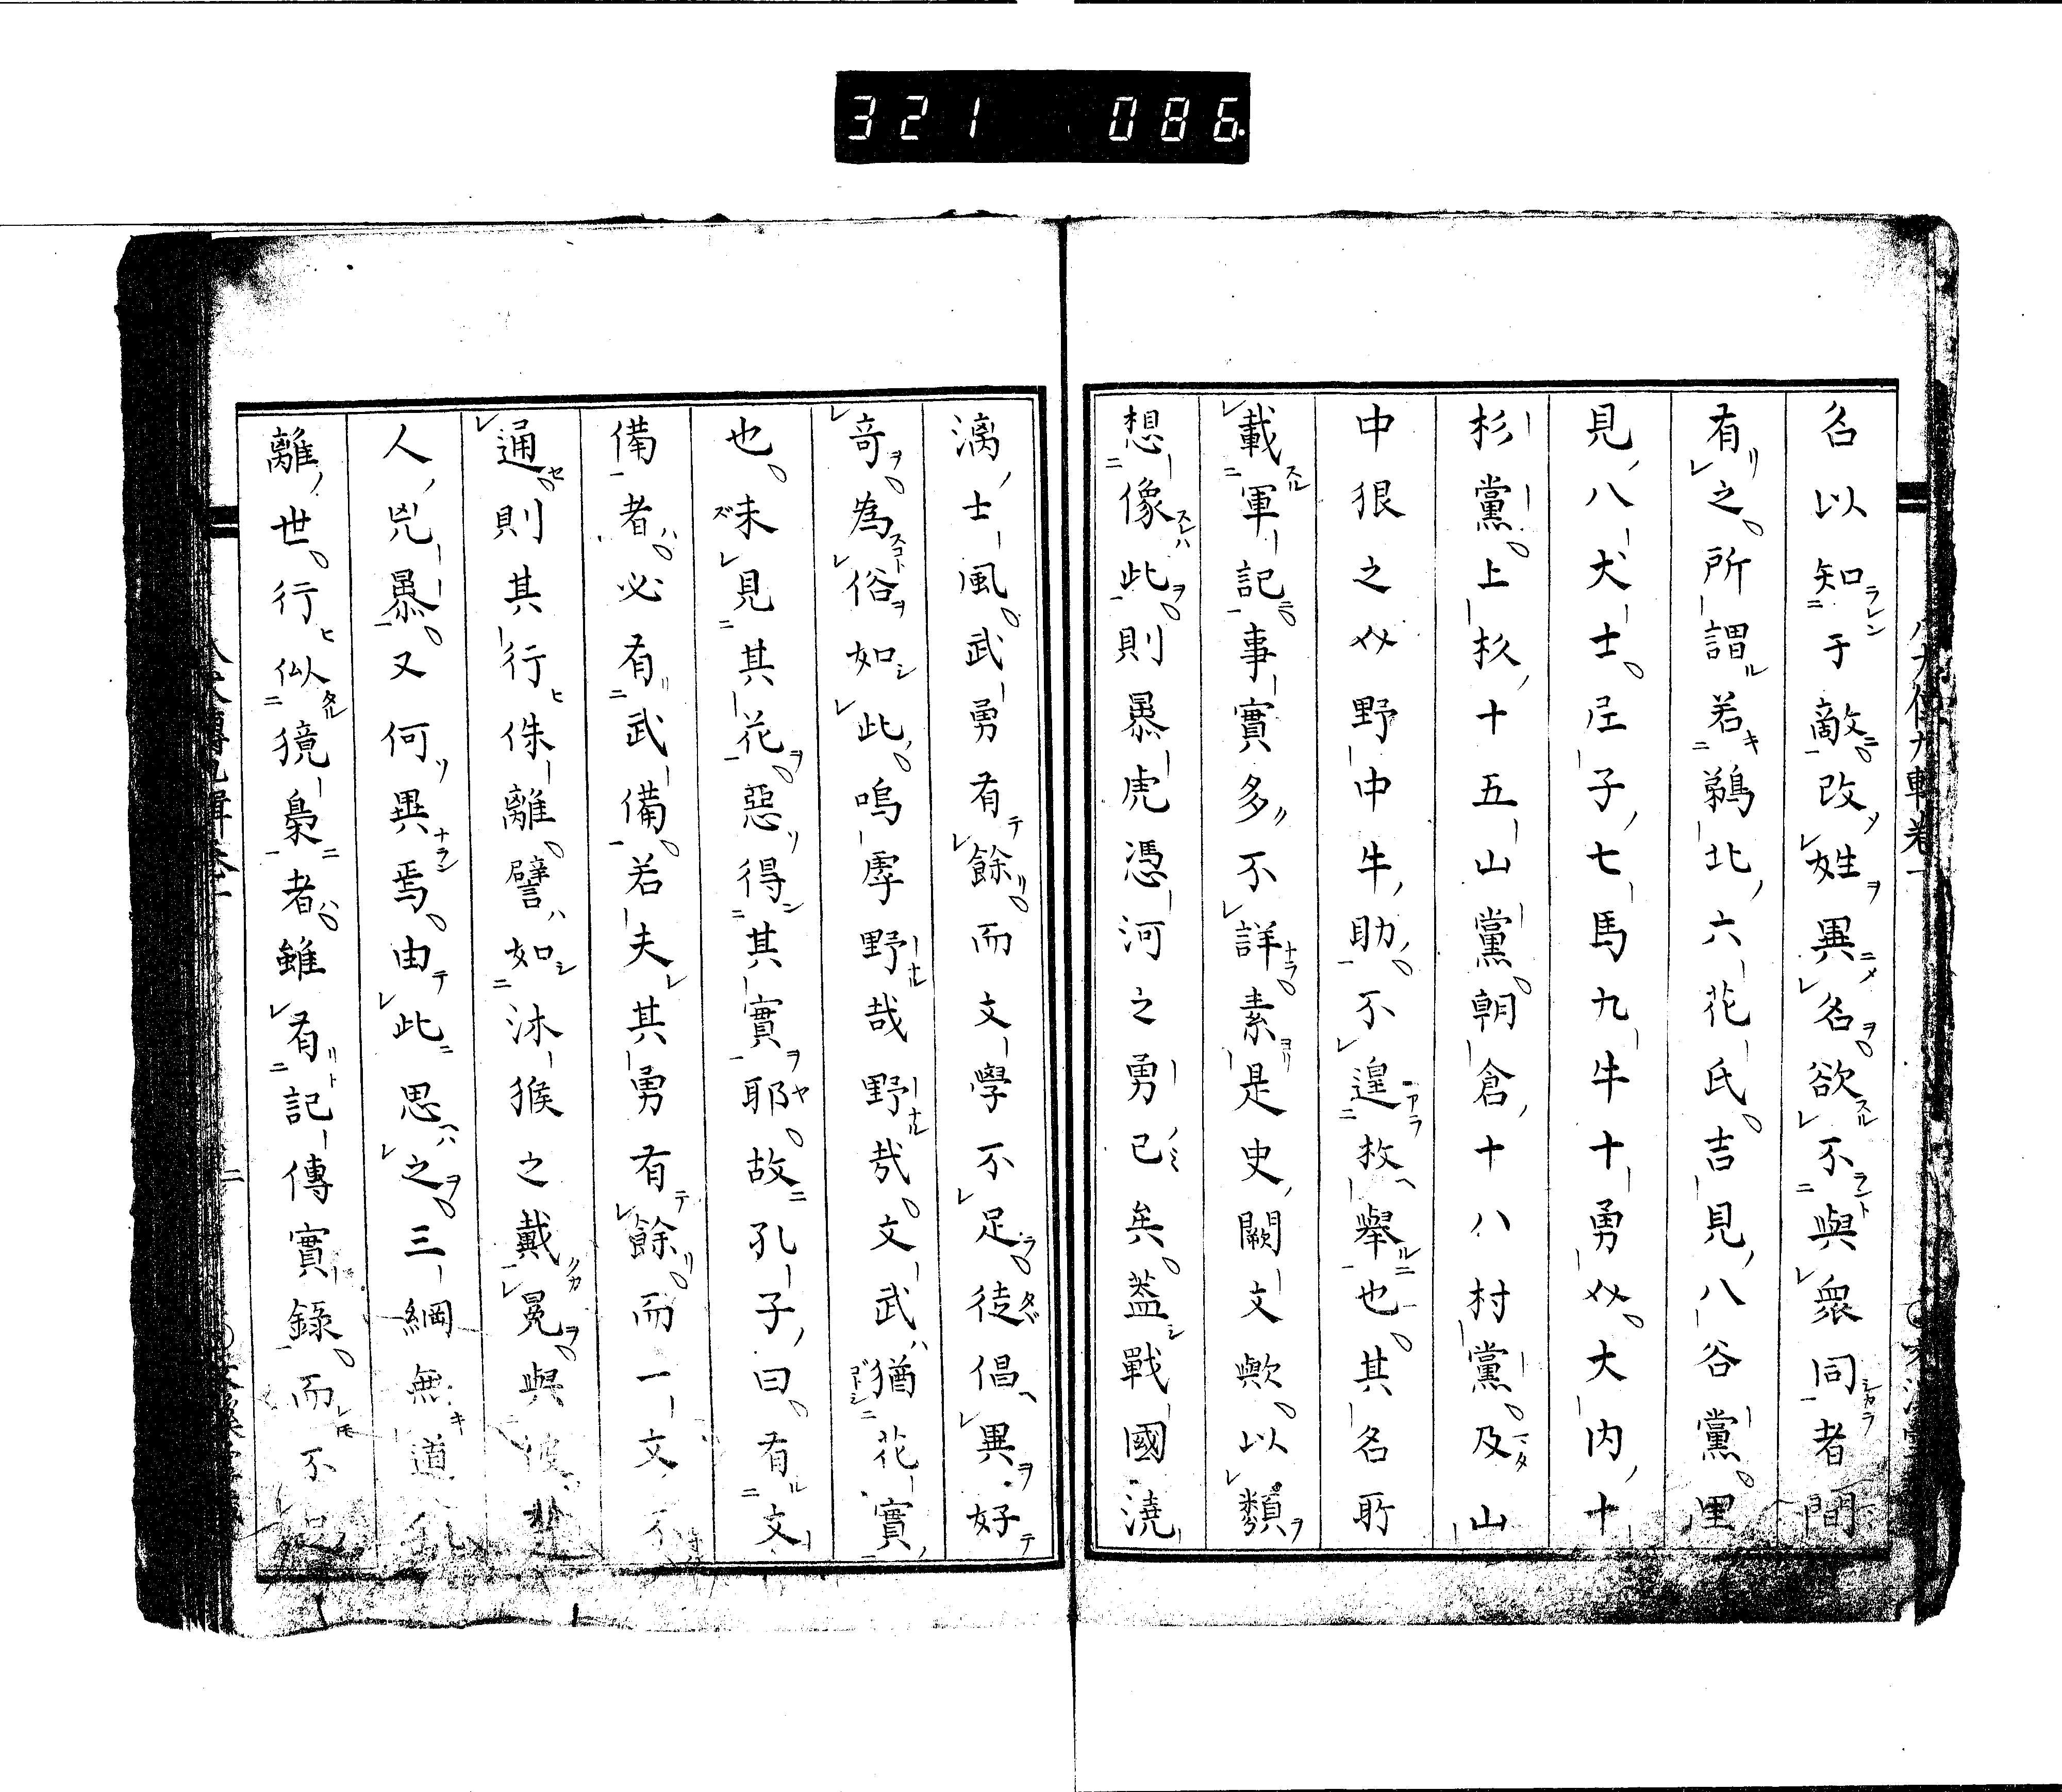 321 086
名以知于敵改姓異名欲不與衆同者間
有之所謂若鵜北六花氏吉見八谷黨里
見八犬士尼子七馬九牛十勇士大内十
杉黨上杦十五山黨朝倉十八村黨及山
中狼之介野中牛助不遑枚擧也其名所
載軍記事實多不詳素是史闕文歟以類
想像此則暴虎憑河之勇已矣盖戰國澆
漓士風武勇有餘而文學不足徒倡異好
奇為俗如此嗚虖野哉野哉文武猶花實
也未見其花惡得其實耶故孔子曰有文
備者必有武備若夫其勇有餘而一文不
通則其行侏離譬如沐猴之戴冕與彼
人兇暴又何異焉由此思之三綱無道
離世行似獍梟者雖有記傳實錄而不足